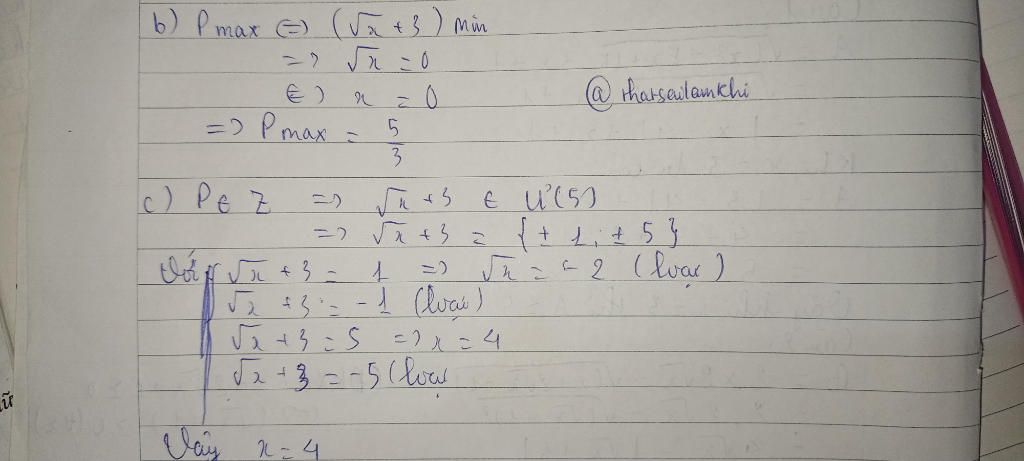 b) P max ⇔ (√x + 3) min
=> √x = 0
⇔ x = 0
@ thatsailamkhi
=> P max = 5/3
c) P ∈ Z => √x + 3 ∈ Ư(5)
=> √x + 3 = {± 1; ± 5}
Với √x + 3 = 1 => √x = - 2 (loại)
√x + 3 = - 1 (loại)
√x + 3 = 5 => x = 4
√x + 3 = -5 (loại
Vậy x = 4